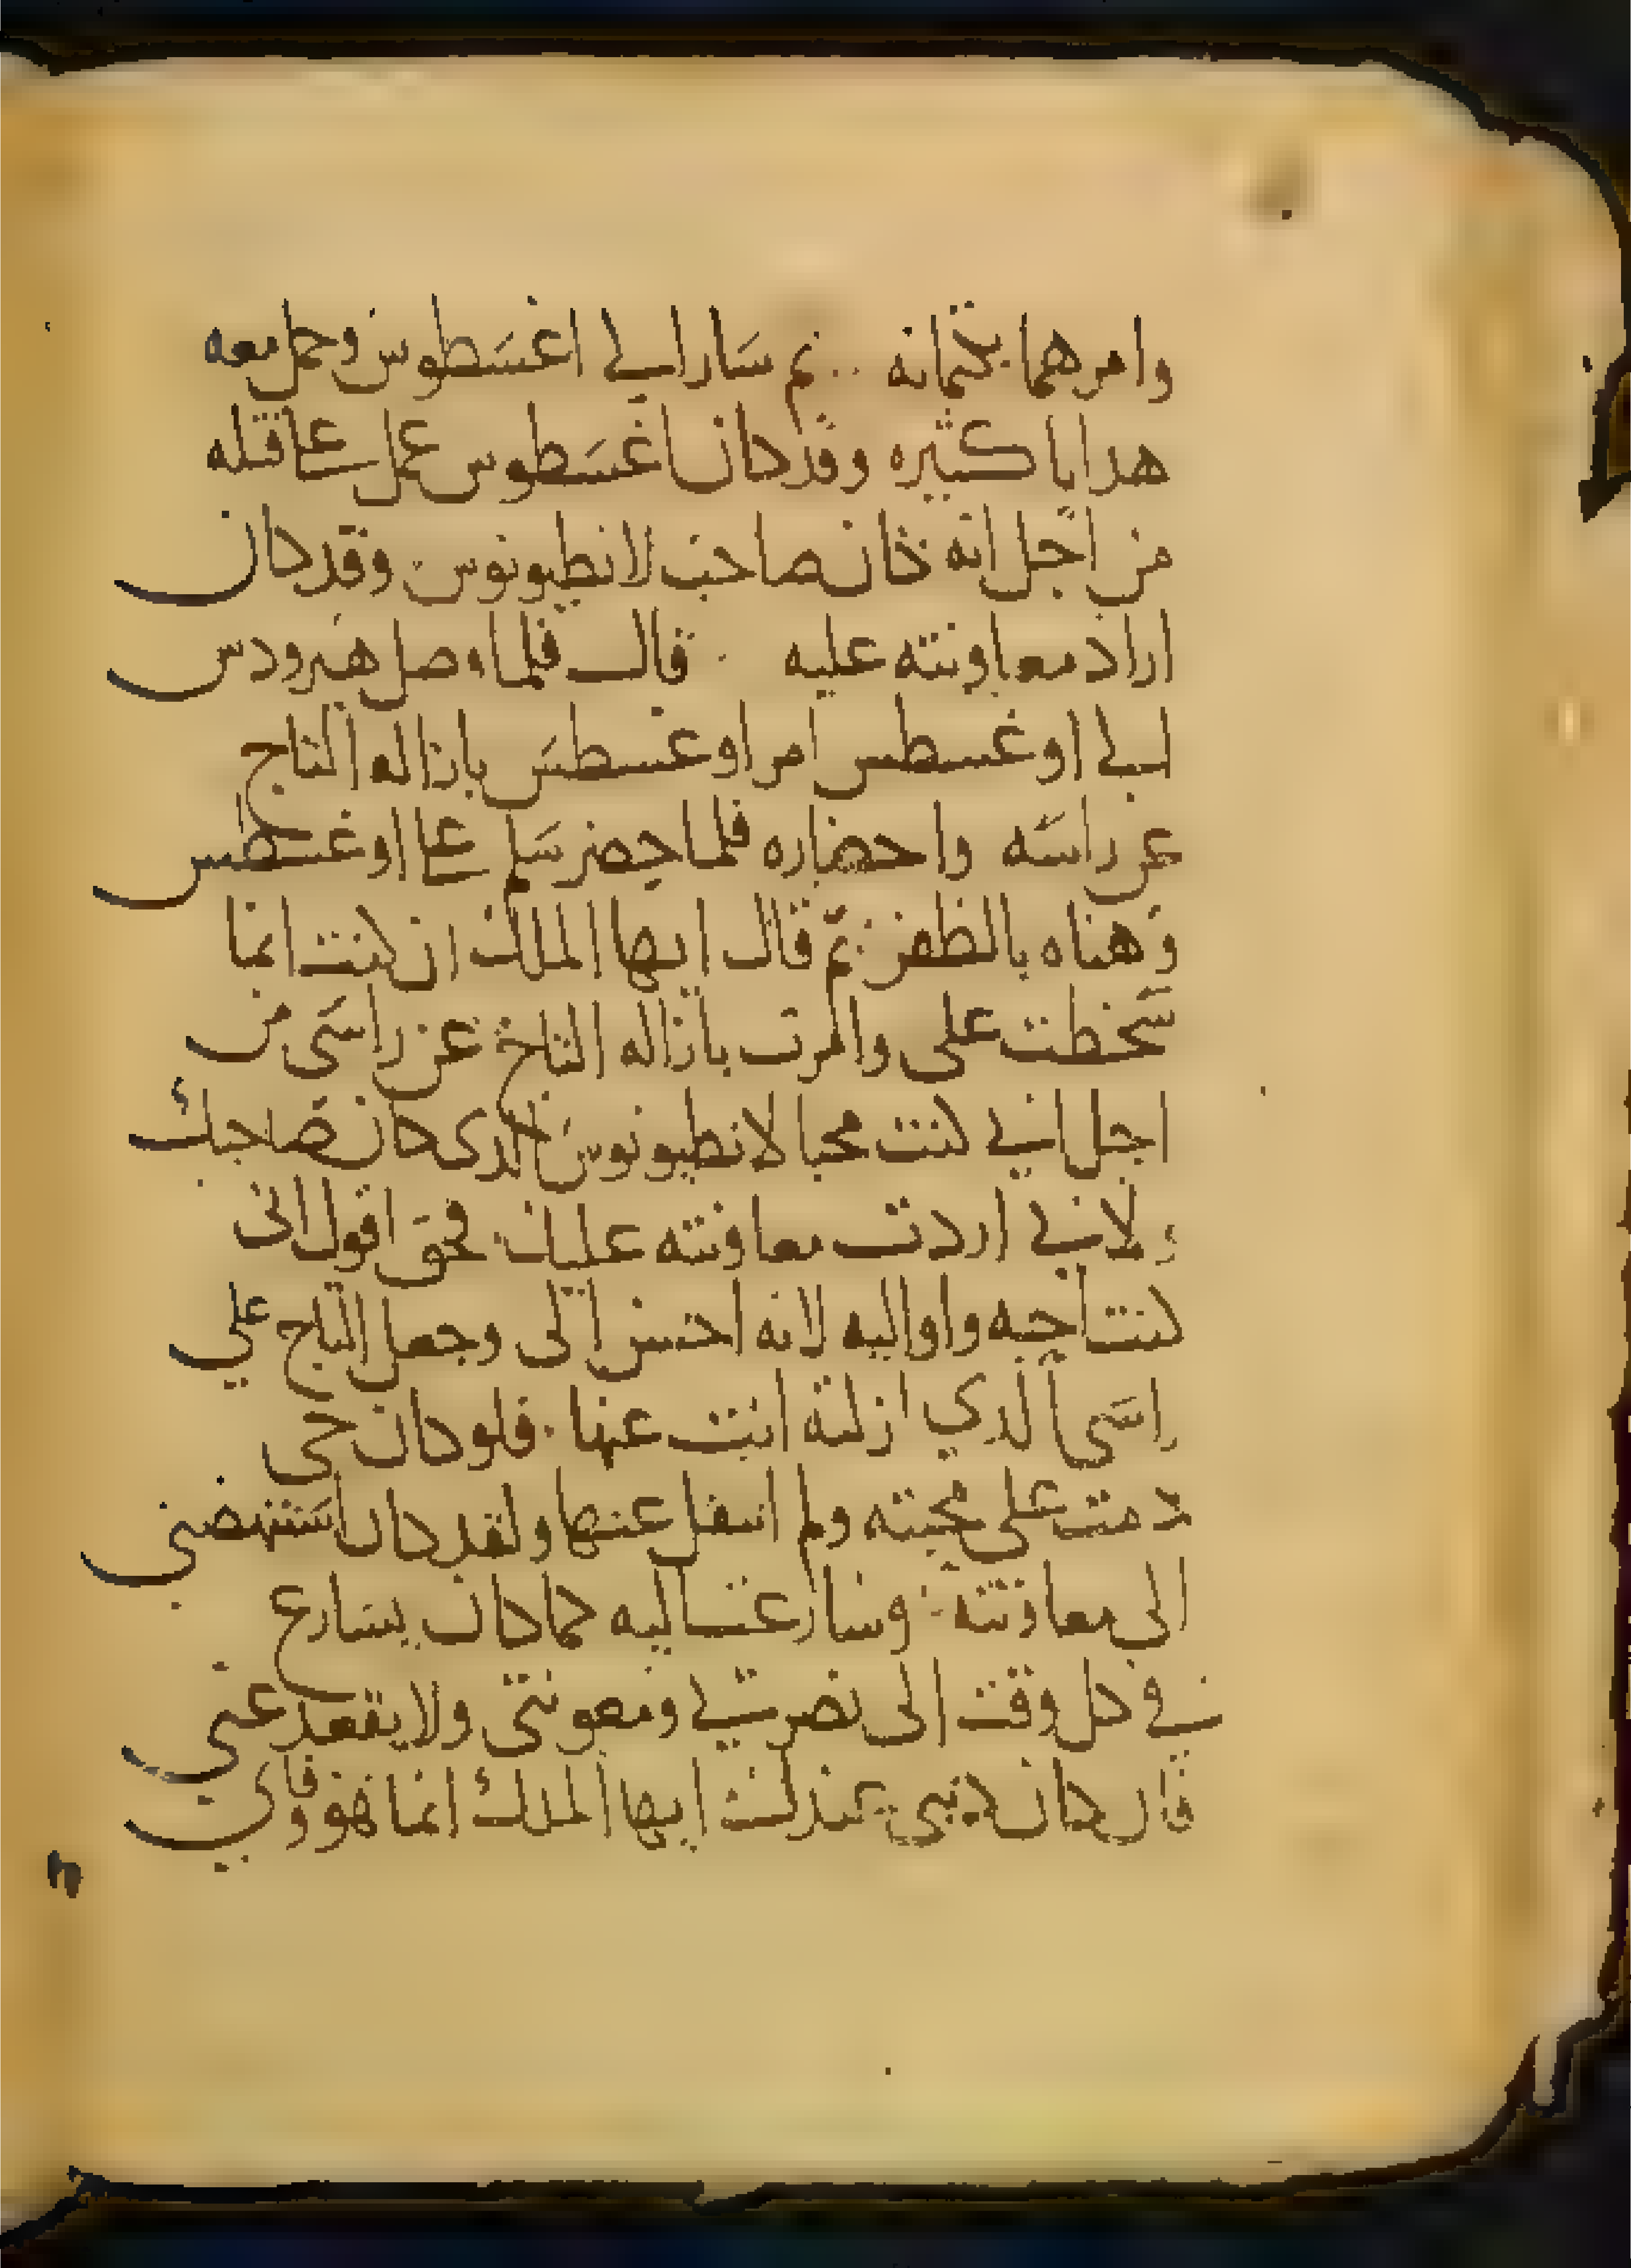 وامرهما بكتمانه ٠٠ ثم سار الي اغسطوس وحمل معه
هدايا كثيره وقد كان اغسطوس عمل علي قتله
من اجل انه كان صاحب لانطيونوس وقد كان
اراد معاونته عليه ٠ قال فلما وصل هيرودس
الي اوغسطس امر اوغسطس بازاله التاج
عن راسه واحضاره فلما حضر سلم علي اوغسطس
وهناه بالظفر ثم قال ايها الملك ان كنت انما
سخطت علي وامرت بازاله التاج عن راسي من
اجل اني كنت محبا لانطيونوس الدي كان صاحبك
ولاني اردت معاونته عليك فحق اقول اني
كنت احبه واواليه لانه احسن الى وجعل التاج علي
راسي الدي ازلته انت عنها ٠ فلو كان حي
دمت على محبته ولم انتقل عنها ولقد كان استنهضني
الى معاونته وسارعت اليه كما كان يسارع
في كل وقت الى نصرتي ومعونتي ولا يقعد عني
فان كان دنبي عندك ايها الملك انما هو وفاي